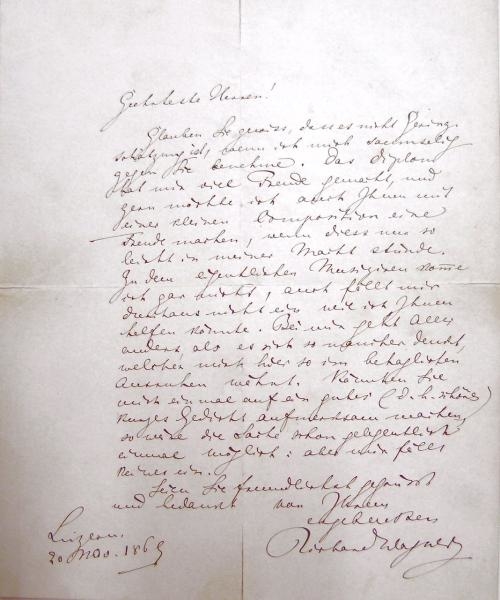 Geehrteste Herren!
Glauben Sie gewiss, dass es nicht Gering-
schätzung ist, wenn ich mich saumselig
gegen Sie benehme. Das Diplom
hat mir viel Freude gemacht, und
gern möchte ich auch Ihnen mit
einer kleinen Composition eine
Freude machen, wenn diess nur so
leicht in meiner Macht stünde.
Zu dem eigentlichen Musiziren komme
ich gar nicht, auch fällt mir
durchaus nicht ein wie ich Ihnen
helfen könnte. Bei mir geht Alles
anders, als es sich so mancher denkt,
welcher mich hier so im behaglichen
Ausruhen wähnt. Könnten Sie
mich einmal auf ein gutes (d. h. schönes)
kurzes Gedicht aufmerksam machen,
so wäre die Sache schon gelegentlich
einmal möglich: aber mir fällt
keines ein.
Seien Sie freundlichst gegrüsst
und bedankt von Ihrem
ergebensten
Richard Wagner
Luzern.
20 Nov. 1869